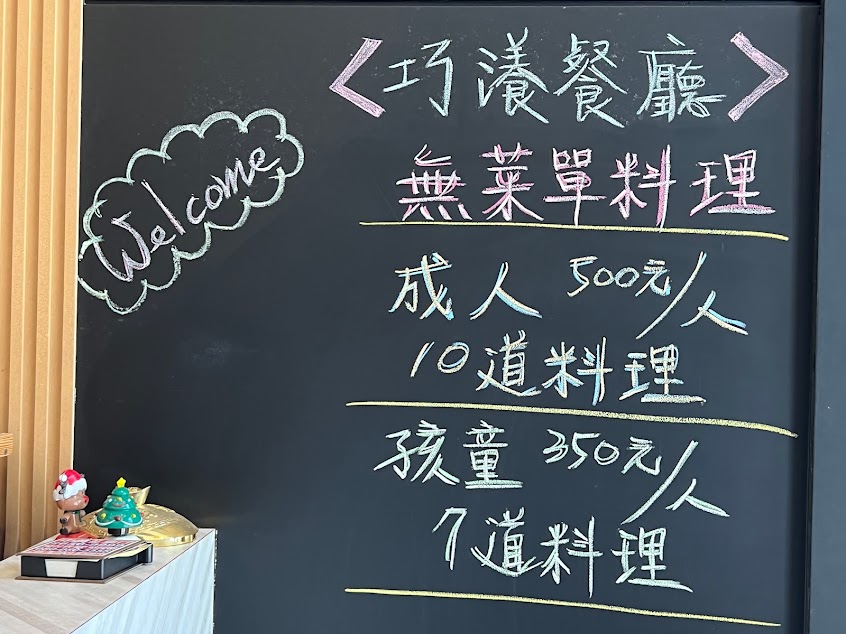 <巧漾餐廳>
無菜單料理
Welcome
成人 500元/人
10道料理
孩童 350元/人
7道料理